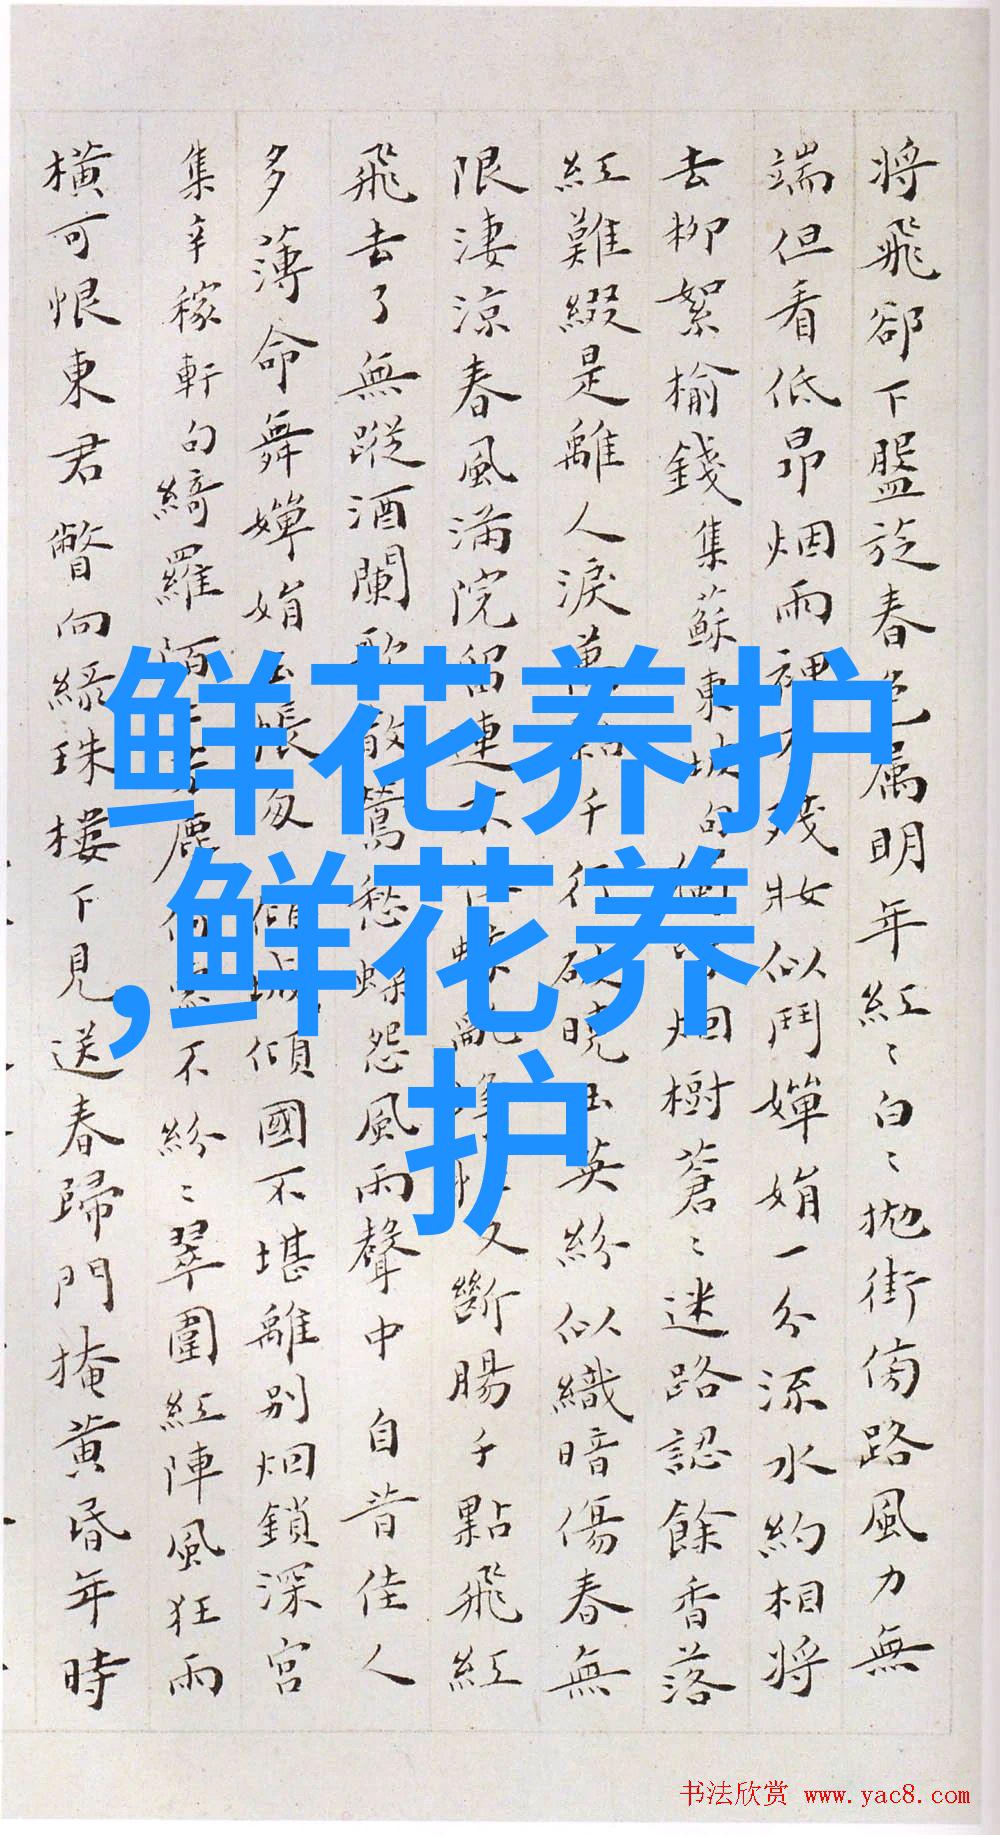 将飛卻下盤旋春色属明年紅〻白〻拋街傍路風力無
端但看低昂烟雨裡不殘妝似鬥嬋娟一分流水約相将
去柳絮榆錢集蘇東坡句烟樹蒼〻迷路認餘香落
紅難綴是離人淚萬點千行破曉玉英紛似織暗傷春無
限淒涼春風滿院留連不又斷腸千點飛紅
飛去了無蹤酒闌歌散鶯愁蝶怨風雨聲中 自昔佳人
多薄命舞嬋娟帳匆傾城傾國不堪離別烟鎖深宮
集辛稼軒句綺羅陌不紛〻翠圍紅陣風狂雨
橫可恨東君瞥向緑珠樓下見送春歸門掩黄昏年時
鲜花养护
,鲜花养
护
书法欣赏 www.yac8.com